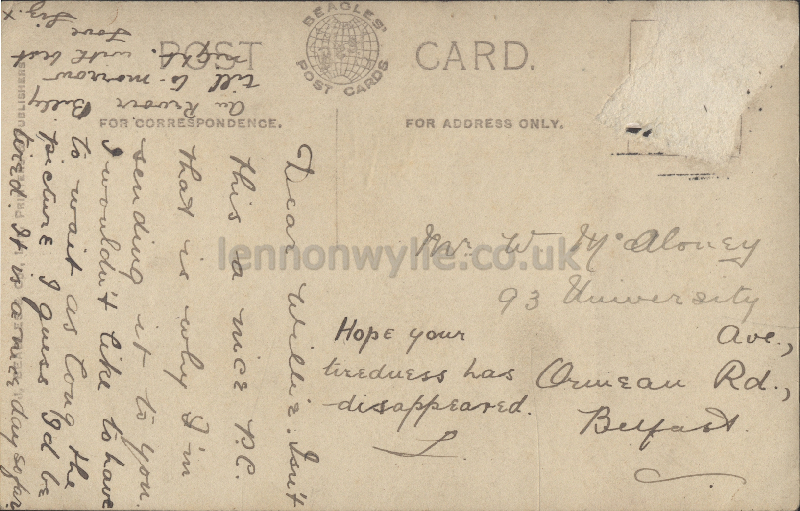 POST CARD.
BEAGLES'
POST CARDS
FOR CORRESPONDENCE.
FOR ADDRESS ONLY.
Dear Willie. Isn't
this a nice P.C.
that is why I'm
sending it to you.
I wouldn't like to have
to wait as long the
picture I guess I'd be
tired. It is a nice day so far.
Au Revoir Billy
till to-morrow
night. with best
Love Liz. x
Mr W McAloney
93 University
Ave.,
Ormeau Rd.,
Belfast.
Hope your
tiredness has
disappeared.
L.
lennonwylie.co.uk